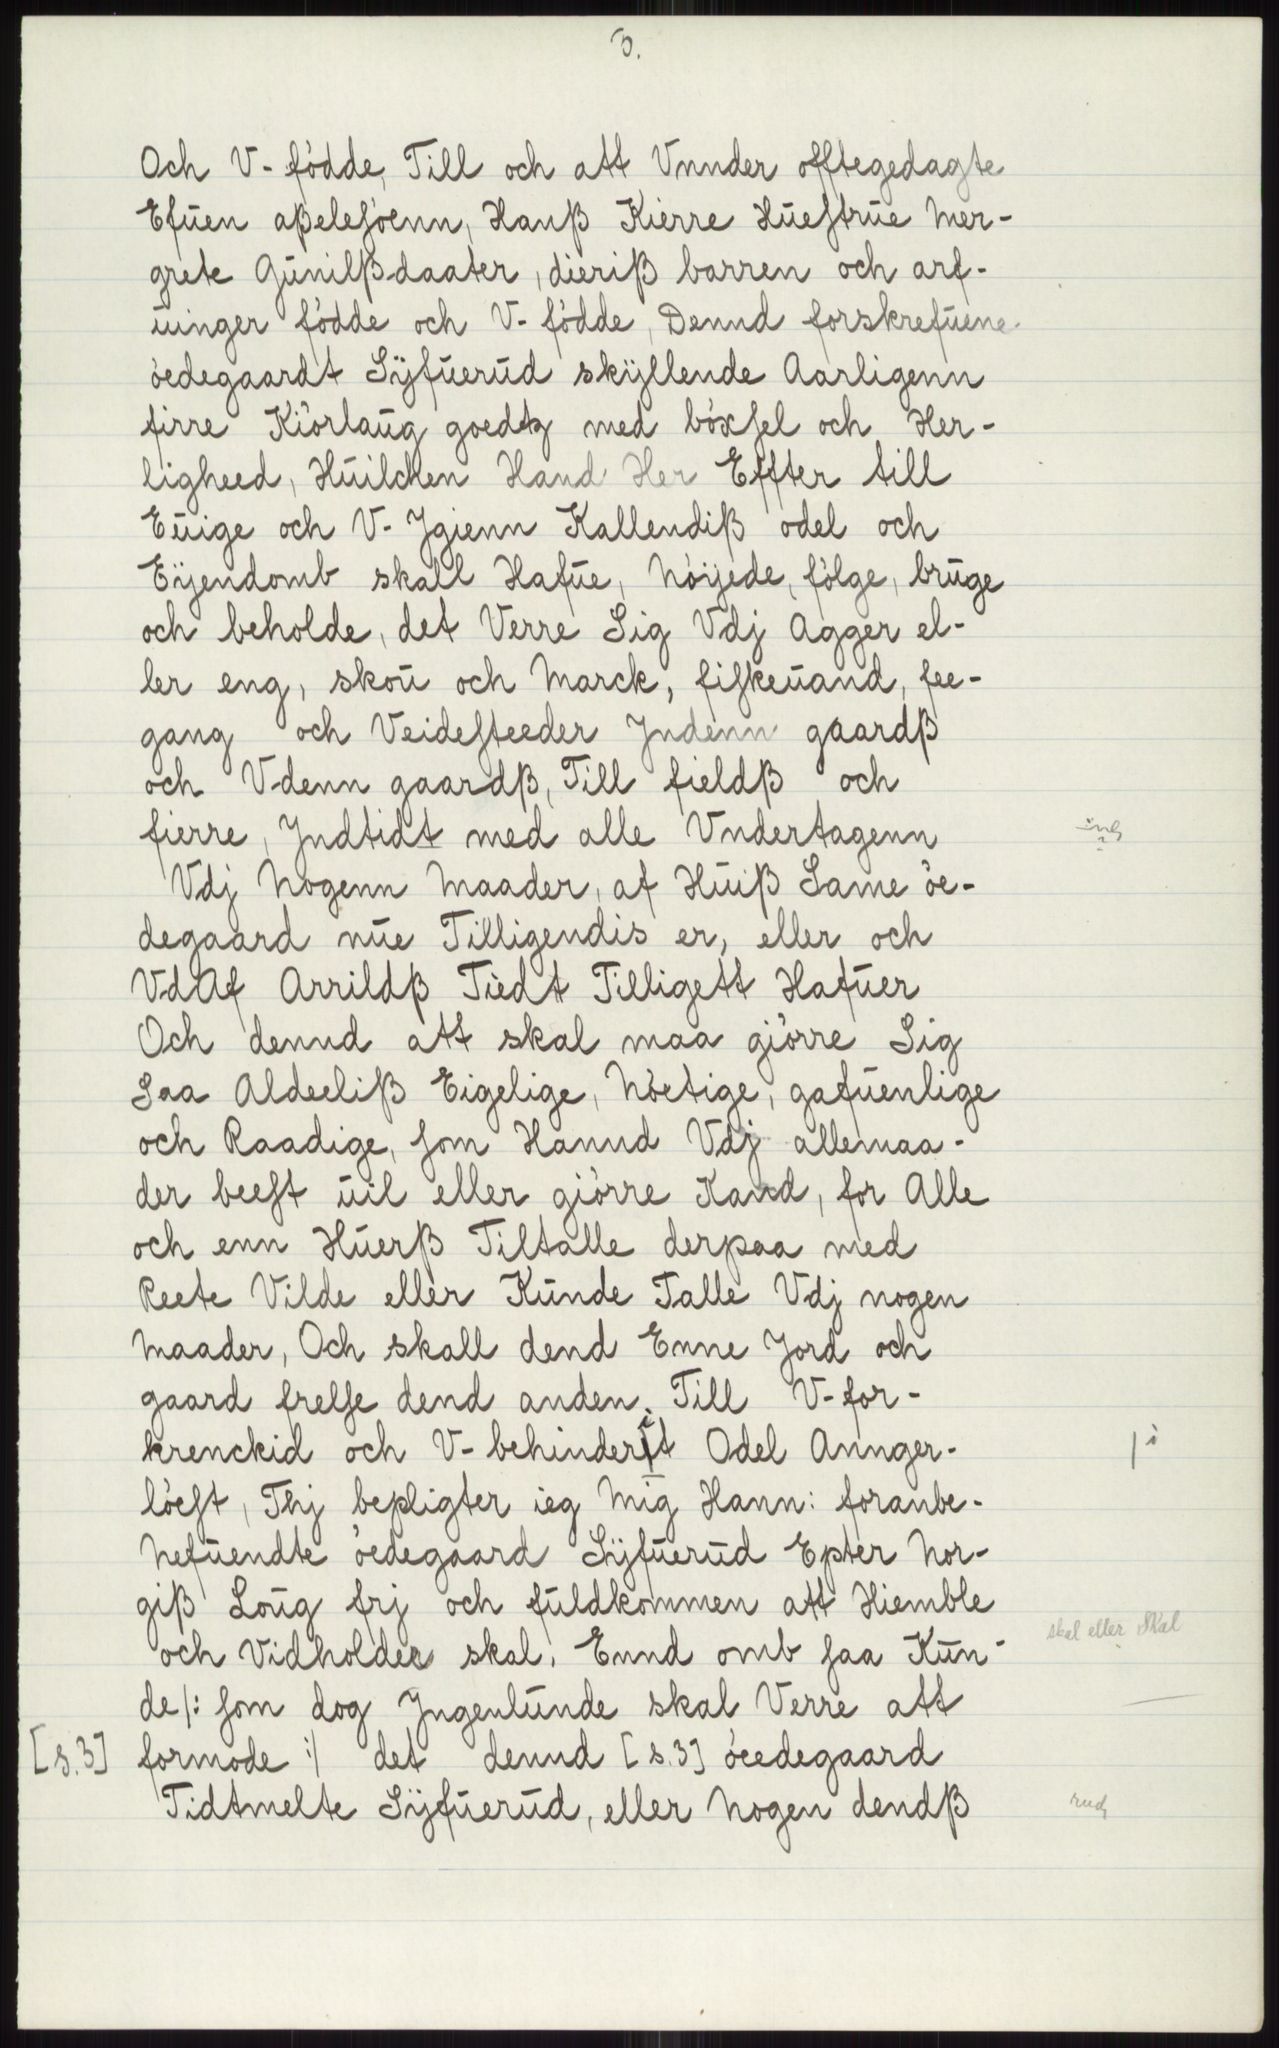 3.
Och V- fódde, Till och att Vnnder offtegedagte
Efūen aßelesóenn, Hanß Kierre Hūestrūe Mer-
grete Gūnilß-daater, dieriß barren och arf-
ūinger fódde och V- fódde, Dennd forskrefūene
óedegaardt Sÿfūerūd skÿllende Aarligenn
firre Kiórlaūg goedtz med bóxsel och Her-
ligheed, Hūilcken Hand Her Effter till
Eūige och V- Jgienn Kallendiß odel och
Eÿendomb skall Hafūe, Nóÿede, fólge, brūge
och beholde, det Verre Sig Vdj Agger el-
ler eng, skoū och Marck, fiskeūand, fee-
gang och Veidesteeder Jndenn gaardß
och Vdenn gaardß, Till fieldß och
fierre, Jndtidt med alle Vndertagenn
Vdj Nogenn Maader, af Hūiß Same óe-
degaard nūe Tilligendis er, eller och
VdAf Arrildß Tiedt Tilligett Hafūer
Och dennd att skal maa giórre Sig
Saa Aldeeliß Eigelige, Nóetige, gafūenlige
och Raadige, som Hannd Vdj allemaa-
der beest ūil eller giórre Kand, for Alle
och enn Hūerß Tiltalle derpaa med
Reete Vilde eller Kūnde Talle Vdj nogen
Maader, Och skall dend Enne Jord och
gaard frelse dend anden, Till V-for-
krenckid och V- behinderit Odel Annger-
lóest, Thj bepligter ieg Mig Hann: foranbe-
Nefūendte óedegaard Sÿfūerūd Epter Nor-
giß Loūg frj och fūldkommen att Hiemble
och Vidholder skal, Ennd omb saa Kūn-
de /: som dog Jngenlūnde skal Verre att
[s.3] formode :/ det dennd [s.3] óeedegaard
Tidtmelte Sÿfūerūd, eller Nogen dendß
i
skal eller Skal
rud